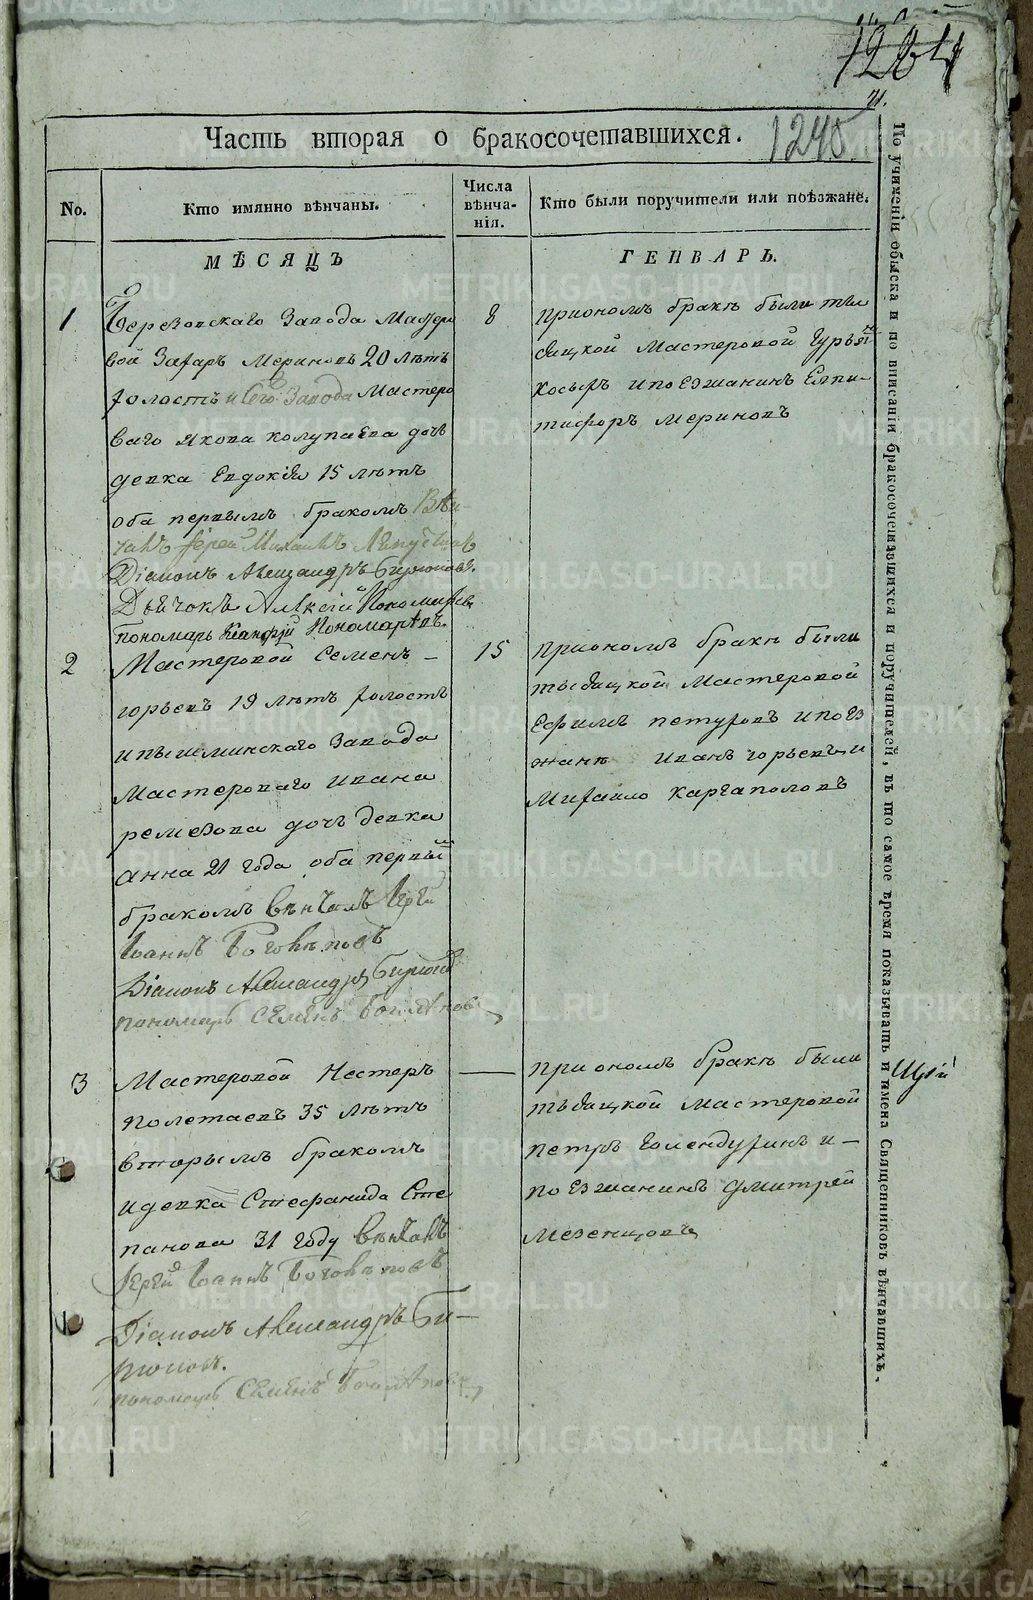 1264
71.
Часть вторая о бракосочетавшихся.
1240
No.
Кто имянно вѣнчаны.
Числа
вѣнча-
нія.
Кто были поручители или поѣзжане.
МѢСЯЦЪ
ГЕНВАРЬ.
1
Березовскаго Завода Мастеро
вой Захаръ Мериновъ 20 лѣтъ
холостъ и Сего Завода Мастеро
ваго Якова колупаева дочь
девка Евдокія 15 лѣтъ
оба первымъ бракомъ Вѣн-
чалъ Іерей Михаилъ
Діаконъ Александръ Бирюковъ.
Дьячокъ Алексій Пономаревъ
пономарь Пономаревъ.
8
приономъ бракѣ были ты
сяцкой Мастеровой Гурьян
Косыхъ ипоезжанинъ Епи-
тифоръ Мериновъ
2
Мастеровой Семенъ –
юрьевъ 19 лѣтъ холостъ
ипышминскаго Завода
Мастероваго ивана
ремезова дочь девка
анна 21 года оба первый
бракомъ вѣнчалъ Іерей
Іоаннъ Боголѣповъ
Діаконъ Александръ Бирюковъ
пономарь Семенъ
15
приономъ бракѣ были
тысяцкой Мастеровой
Ефимъ петуховъ ипоез
жанѣ иванъ юрьевъ и
Михайло каргаполовъ
3
Мастеровой Нестеръ
полетаевъ 35 лѣтъ
вторымъ бракомъ
идевка Стефанида Сте
панова 31 году вѣнчалъ
Іерей Іоаннъ Боголѣповъ
Діаконъ Александръ Би–
рюковъ.
пономарь Семенъ
—
приономъ бракѣ были
тысяцкой мастеровой
петръ Голендухинъ и –
поезжанинъ дмитрей
мезенцовъ
По учиненіи обыска и по вписаніи бракосочетавшихся и поручителей, въ то самое время показывать и имена Священниковъ вѣнчавшихъ.
METRIKI.GASO-URAL.RU